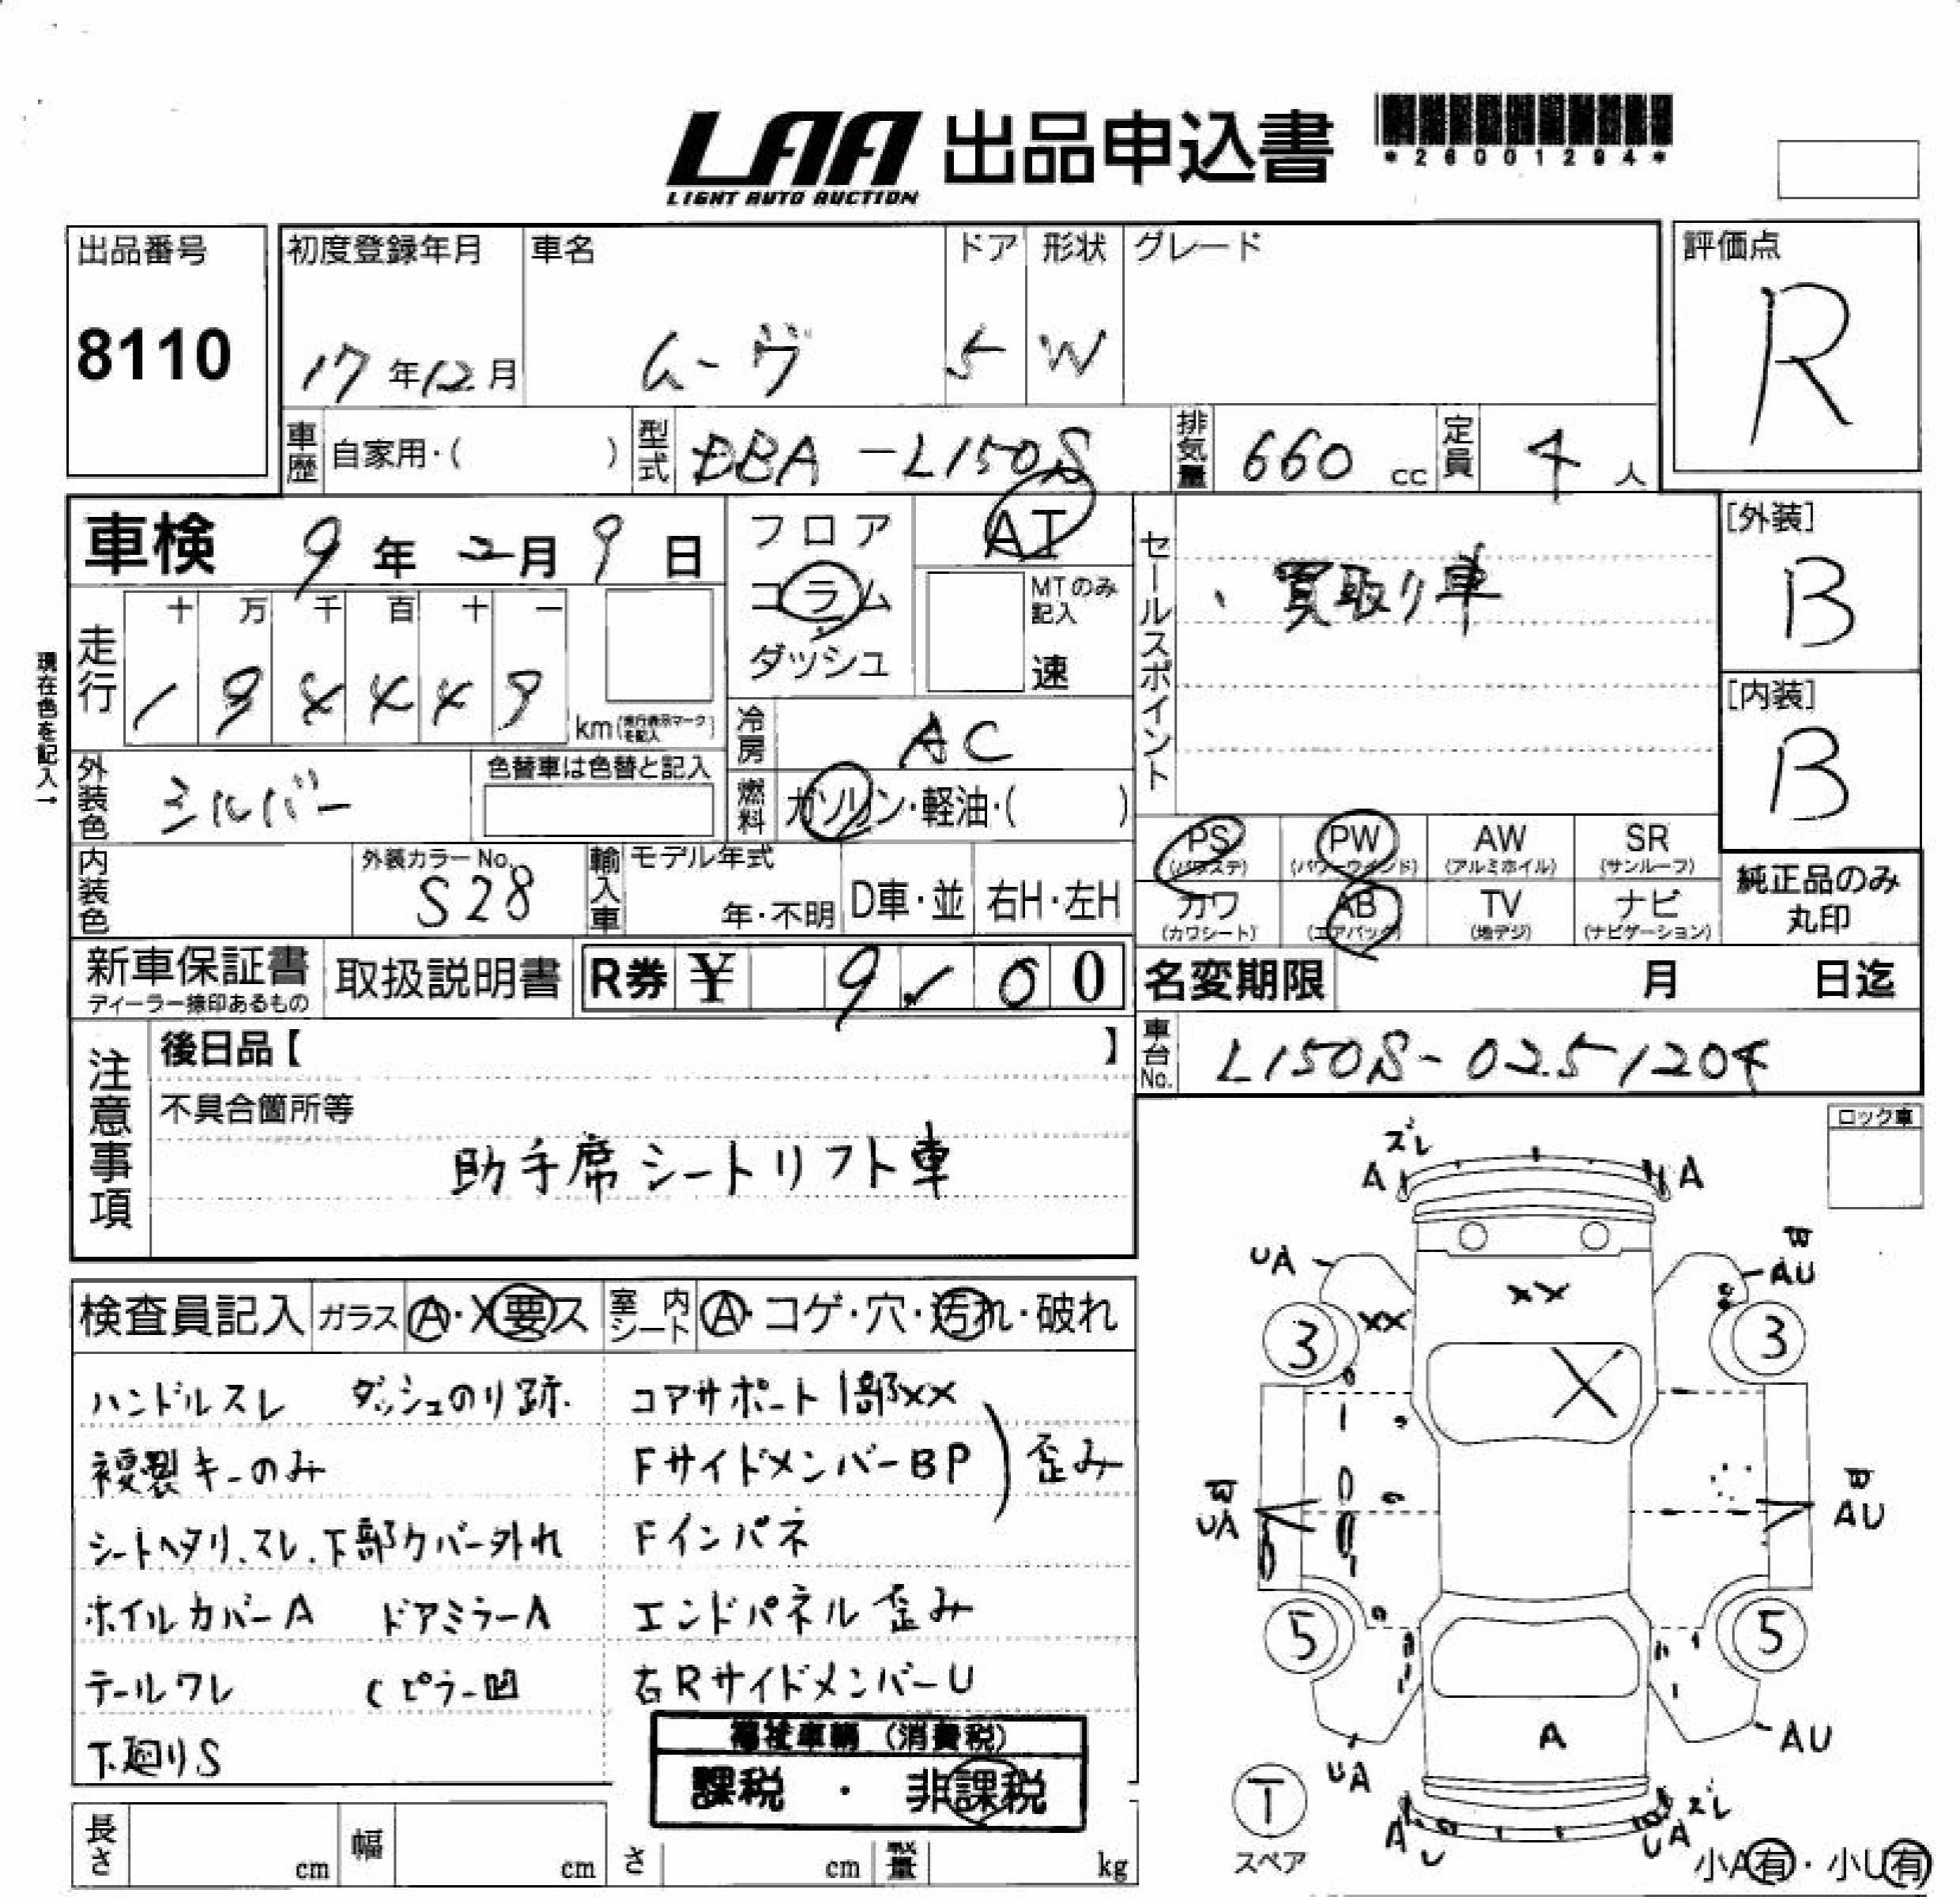 LAA 出品申込書
LIGHT AUTO AUCTION
*26001294*
出品番号
8110
初度登録年月
17年12月
車名
ムーヴ
ドア
5
形状
W
グレード
評価点
R
車歴 自家用・( )
型式 DBA-L150S
排気量 660 cc
定員 4 人
車検 9年2月9日
フロア
コラム
ダッシュ
AT
MTのみ記入
速
セールスポイント
、買取り車
[外装]
B
[内装]
B
現在色を記入→
走行
十 万 千 百 十 一
km(走行表示マークを記入)
冷房 AC
燃料 ガソリン・軽油・( )
外装色 シルバー
色替車は色替と記入
内装色
外装カラーNo.
S28
輸入車
モデル年式
年・不明
D車・並
右H・左H
PS
(パワステ)
PW
(パワーウインド)
AW
(アルミホイル)
SR
(サンルーフ)
カワ
(カワシート)
AB
(エアバック)
TV
(地デジ)
ナビ
(ナビゲーション)
純正品のみ
丸印
新車保証書
ディーラー捺印あるもの
取扱説明書
R券 ¥ 9 1 0 0
名変期限 月 日迄
車台No. L150S-0251204
注意事項
後日品【 】
不具合箇所等
助手席シートリフト車
ロック車
検査員記入
ガラス A・X要ス
室内シート A・コゲ・穴・汚れ・破れ
ハンドルスレ ダッシュのり跡.
コアサポート1部XX
複製キーのみ
FサイドメンバーBP
歪み
シートヘタリ、スレ、下部カバー外れ
Fインパネ
ホイルカバーA ドアミラーA
エンドパネル歪み
テールワレ Cピラー凹
右RサイドメンバーU
下廻りS
福祉車輌(消費税)
課税・非課税
長さ cm
幅 cm
さ cm
量 kg
ズレ
A
A
UA
W
AU
XX
XX
3
3
X
W
UA
W
AU
5
5
A
UA
AU
T
スペア
A
U
UA
ズレ
小A有・小U有